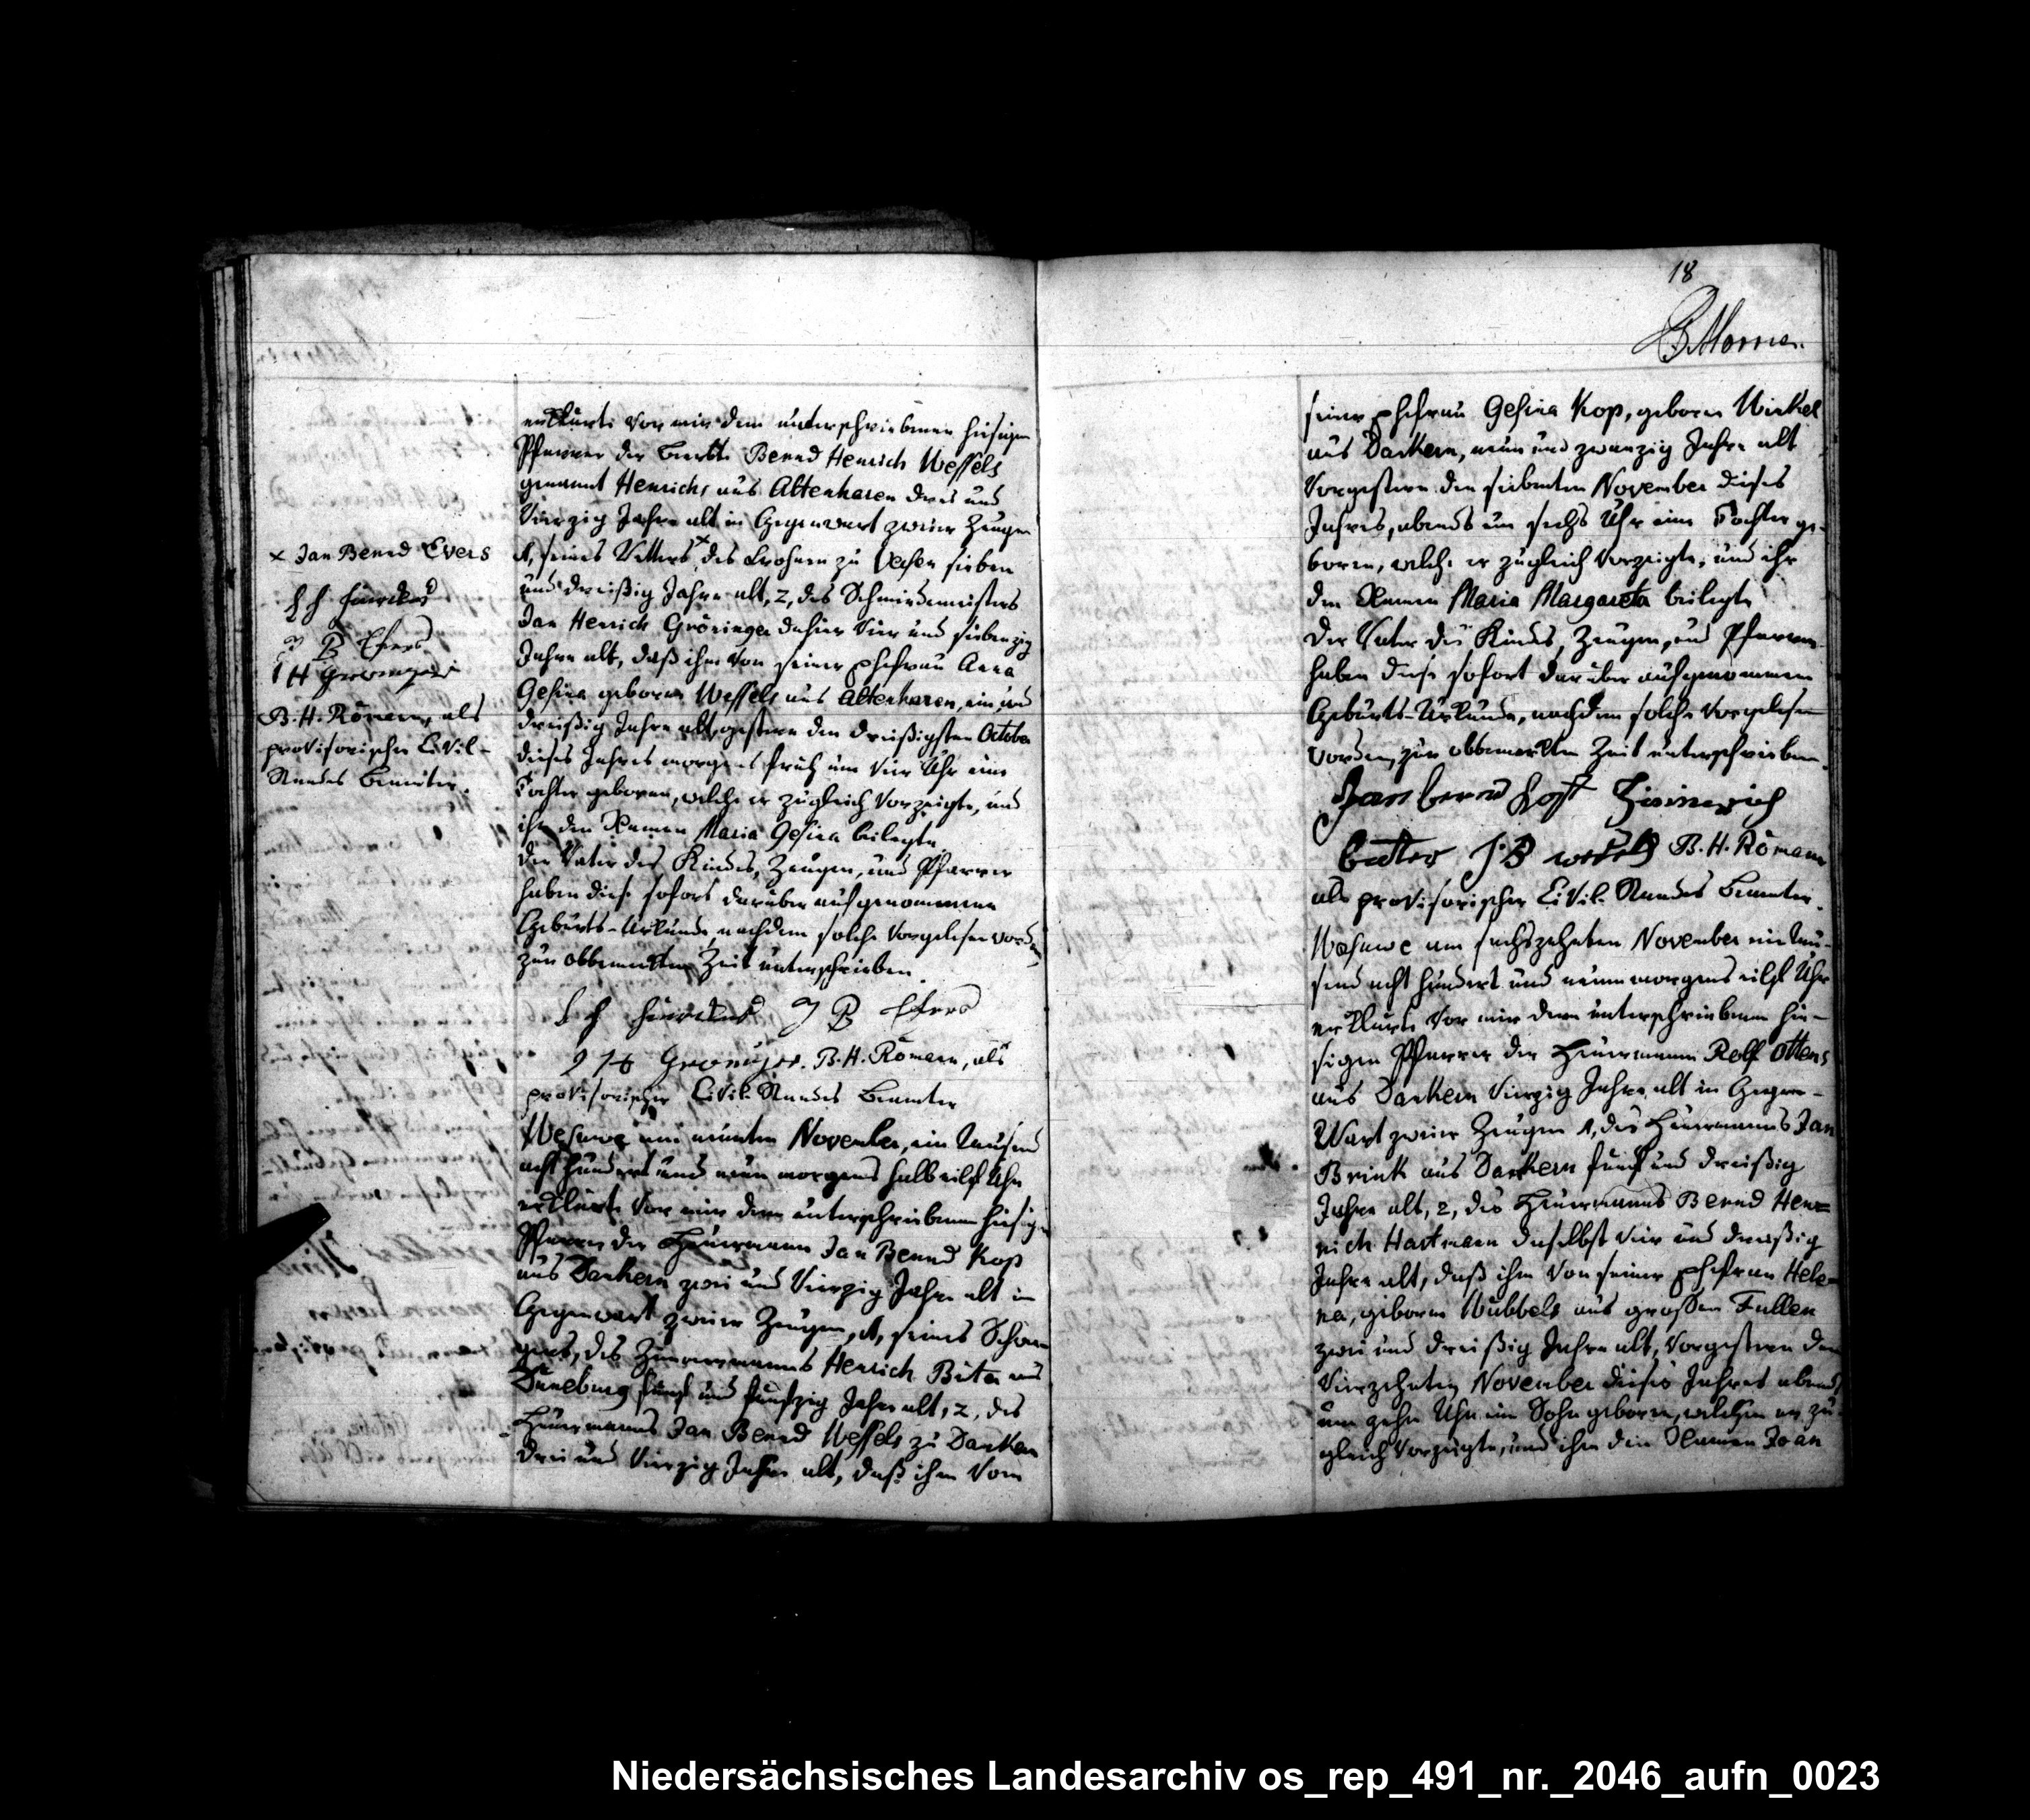 erklärte vor mir dem unterschriebenen hiesigen
Pfarrer der Beerbte Bernd Henrich Wessels
genannt Henrichs aus Altenharen drei und
Vierzig Jahre alt in Gegenwart zweier Zeugen
1, seines Vetters × des Frohnen zu Vehsen sieben
und dreißig Jahre alt, 2, des Schmiedemeisters
Jan Henrich Gröninger dahier Vier und siebenzig
Jahre alt, daß ihm von seiner Ehefrau Anna
Gesina geboren Wessels aus Altenharen, ein und
dreißig Jahre alt, gestern den dreißigsten October
dieses Jahres morgens früh um Vier Uhr eine
Tochter geboren, welche er zugleich vorzeigte, und
ihr den Namen Maria Gesina beilegte.
Der Vater des Kindes, Zeugen, und Pfarrer
haben diese sofort darüber aufgenommene
Geburts-Urkunde, nachdem solche vorgelesen worden,
zur obbemerkten Zeit unterschrieben.
J B Efers
Gröninger. B. H. Römann, als
provisorischer Civil-Standes Beamter
Wesuwe am neunten November, ein tausend
acht hundert und neun morgens halb eilf Uhr
erklärte vor mir dem unterschriebenen hiesigen
Pfarrer der Heuermann Jan Bernd Kop
aus Dankern zwei und Vierzig Jahre alt in
Gegenwart zweier Zeugen, 1, seines Schwa-
gers, des Zimmermanns Henrich Büter aus
Düneburg fünf und fünfzig Jahre alt, 2, des
Heuermanns Jan Bernd Wessels zu Dankern
drei und Vierzig Jahre alt, daß ihm von
× Jan Bernd Evers
J B Efers
B. H. Römann, als
provisorischer Civil-
Standes Beamter.
18
seiner Ehefrau Gesina Kop, geboren Winkel
aus Dankern, neun und zwanzig Jahre alt
Vorgestern den siebenten November dieses
Jahres, abends um sechs Uhr eine Tochter ge-
boren, welche er zugleich vorzeigte, und ihr
den Namen Maria Margareta beilegte
Der Vater des Kindes, Zeugen, und Pfarrer
haben diese sofort darüber aufgenommene
Geburts-Urkunde, nachdem solche vorgelesen
worden, zur obbemerkten Zeit unterschrieben.
Jan bernd Hinnerich
J B wessels B. H. Römann
als provisorischer Civil-Standes Beamter.
Wesuwe am sechszehnten November ein tau-
send acht hundert und neun morgens eilf Uhr
erklärte vor mir dem unterschriebenen hie-
sigen Pfarrer der Heuermann Rolf Ottens
aus Dankern Vierzig Jahre alt in Gegen-
wart zweier Zeugen 1, des Heuermanns Jan
Brink aus Dankern fünf und dreißig
Jahre alt, 2, des Heuermanns Bernd Hen-
rich Hartmann daselbst vier und dreißig
Jahre alt, daß ihm von seiner Ehefrau Hele-
na, geboren Wübbels aus großen Fullen
zwei und dreißig Jahre alt, vorgestern den
Vierzehnten November dieses Jahres abends
um zehn Uhr ein Sohn geboren, welchen er zu-
gleich vorzeigte, und ihm den Namen Joan
Niedersächsisches Landesarchiv os_rep_491_nr._2046_aufn_0023